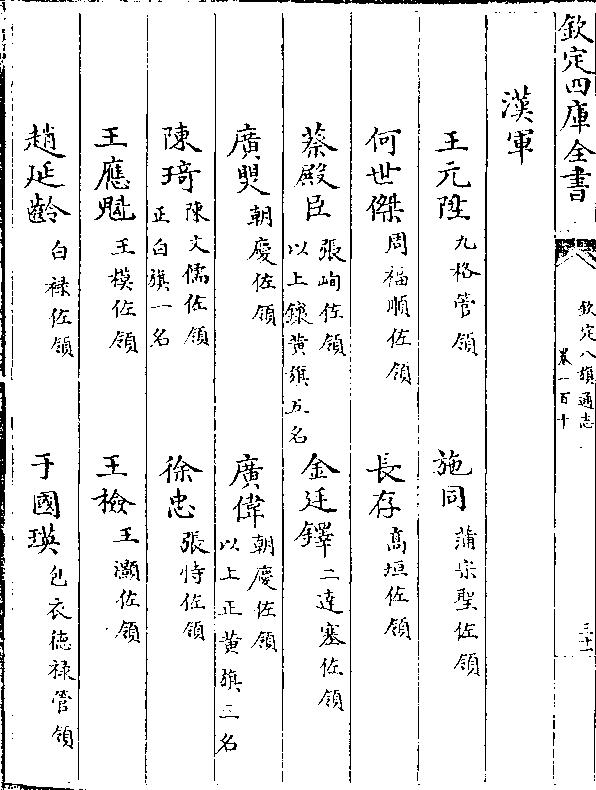 欽定四庫全書
欽定八旗通志
卷一百十
三十一
漢軍
王元陞 九格管領 施同 蒲宗聖佐領
何世傑 周福順佐領 長存 高垣佐領
蔡殿臣 張峋佐領 以上鑲黃旗五名 金廷鐸 二達塞佐領
廣㷼 朝慶佐領 廣偉 朝慶佐領 以上正黃旗三名
陳琦 陳文儒佐領 正白旗一名 徐忠 張恃佐領
王應魁 王模佐領 王檢 王灝佐領
趙延齡 白祿佐領 于國瑛 包衣德祿管領